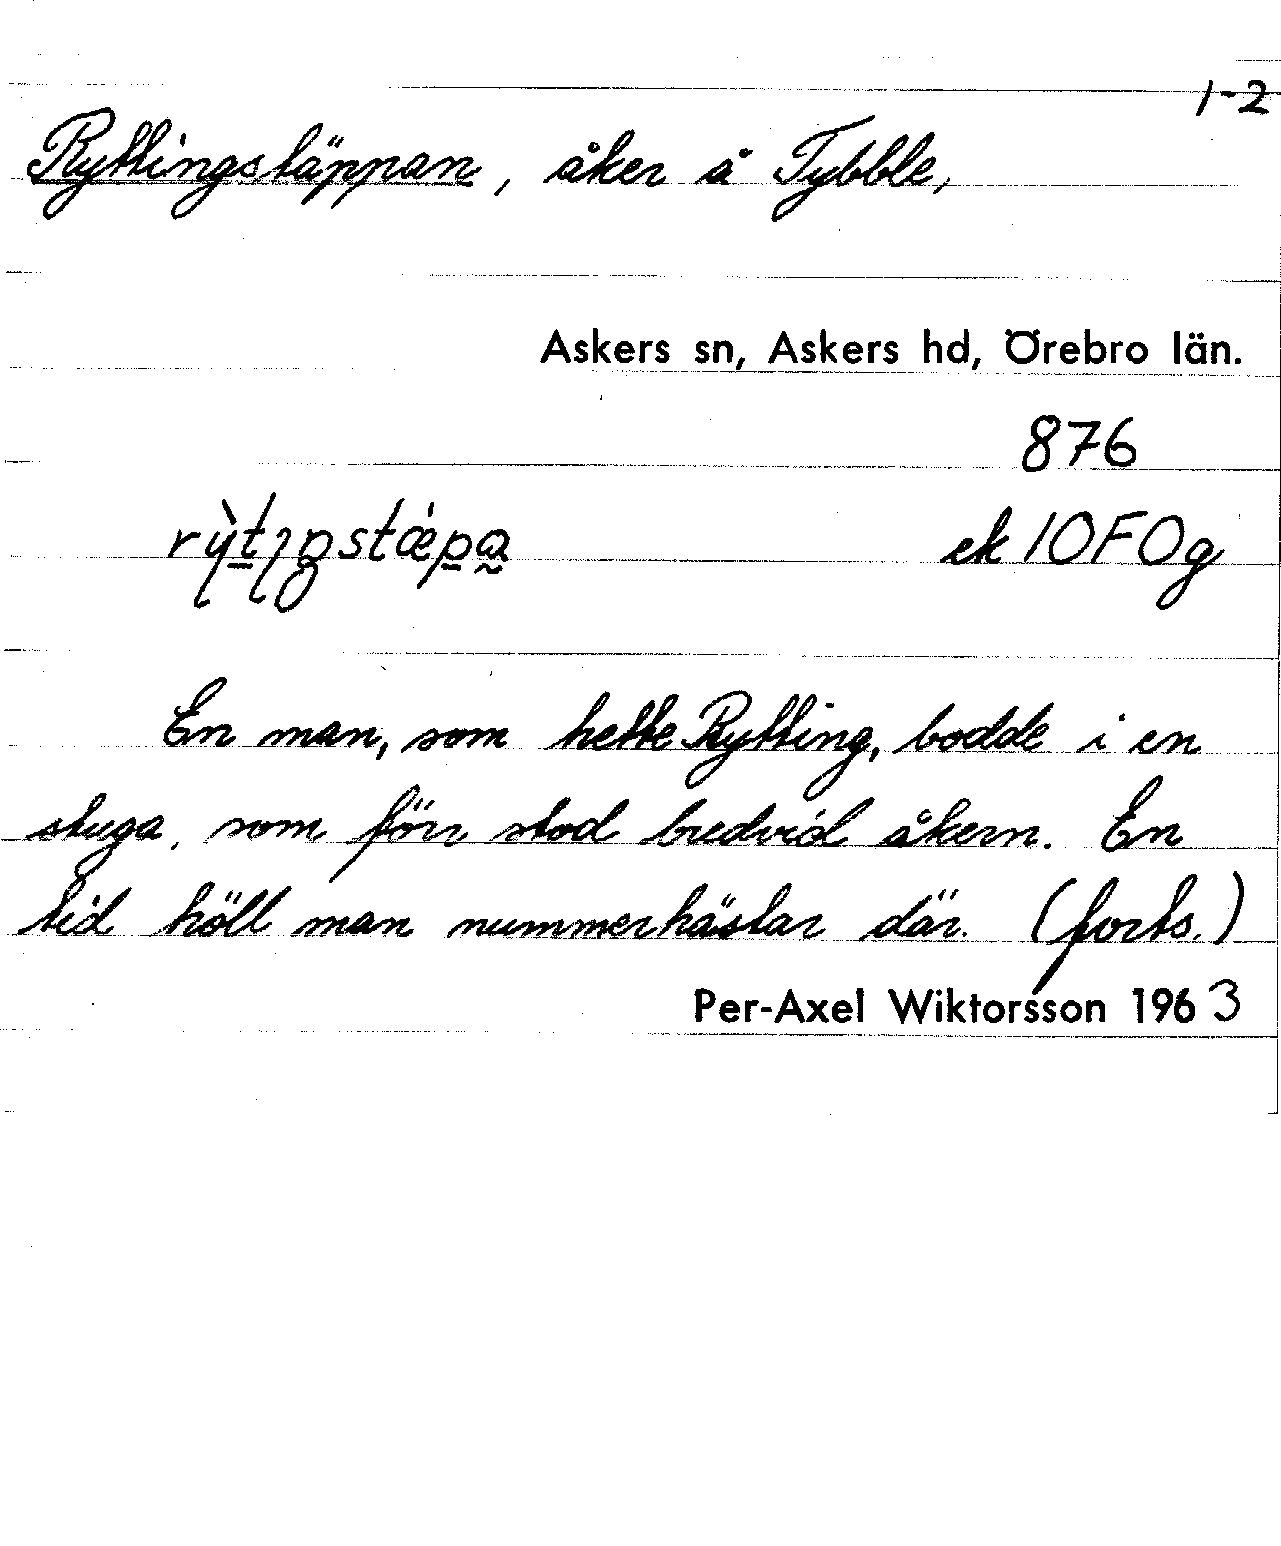 1-2
Ryttingstäppan, åker å Tybble,
Askers sn, Askers hd, Örebro län.
876
ek 10F0g
En man, som hette Rytting, bodde i en
stuga, som förr stod bredvid åkern. En
tid höll man nummerhästar där. (forts.)
Per-Axel Wiktorsson 1963